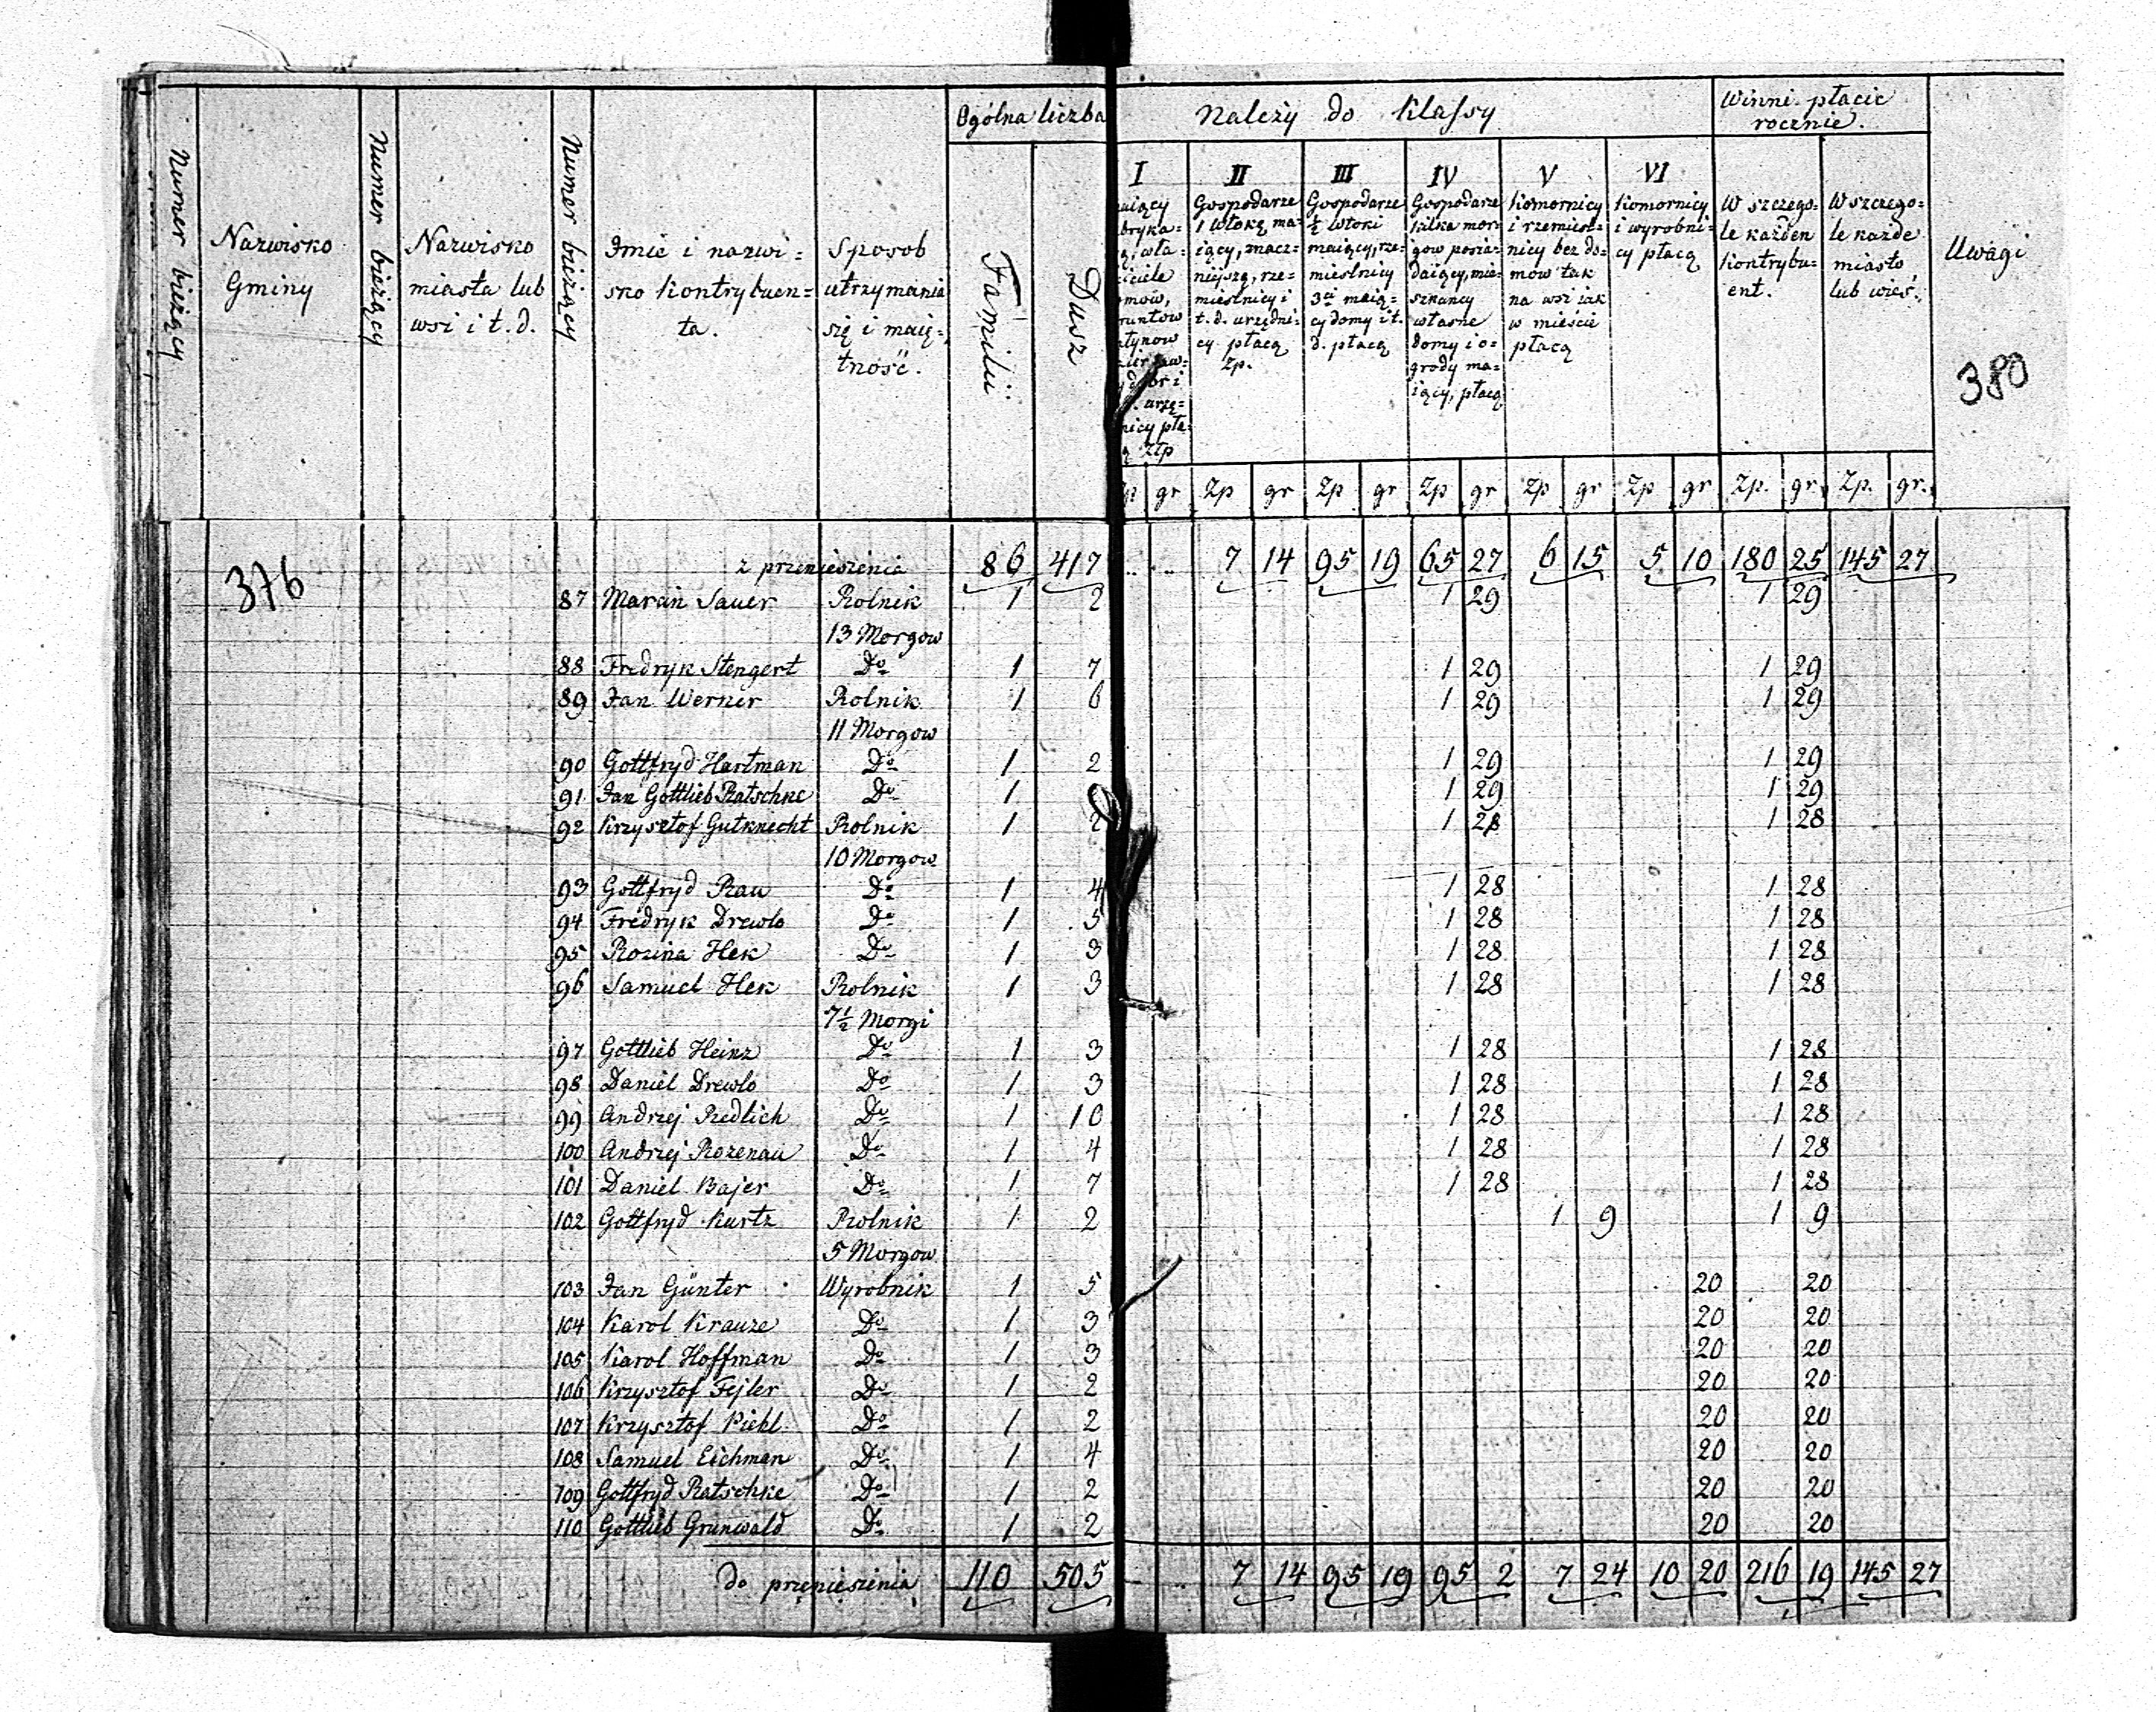 Ogólna liczba
Należy do Klassy
Winni płacić
rocznie.
Numer bieżący
Nazwisko
Gminy
Numer bieżący
Nazwisko
miasta lub
wsi i t. d.
Numer bieżący
Imie i nazwi=
sko Kontrybuen=
ta.
Sposob
utrzymania
się i maię=
tność.
Familii
Dusz
I
II
Gospodarze
1 Włokę ma=
iący, znacz=
niejszą, rze=
mieslnicy i
t. d. urzędni=
cy płacą
Zp.
III
Gospodarze
½ Włoki
maiący, rze=
mieslnicy
3ci maią=
cy domy i t.
d. płacą
IV
Gospodarze
kilka mor=
gow posia=
daiący, mie=
szkancy
własne
domy i o=
grody ma=
iący, płacą
V
Komornicy
i rzemiesl=
nicy bez do=
mów tak
na wsi iak
w mieście
płacą
VI
Komornicy
i wyrobni=
cy płacą
W szczego=
le każden
Kontrybu=
ent.
W szczego=
le każde
miasto,
lub wieś.
Uwagi
380
gr Zp gr Zp gr Zp gr Zp gr Zp gr Zp. gr. Zp. gr.
376
z przeniesienia 86 417 7 14 95 19 65 27 6 15 5 10 180 25 145 27
87 Marcin Sauer Rolnik 1 2 1 29 1 29
13 Morgow
88 Fredryk Stengert Do 1 7 1 29 1 29
89 Jan Werner Rolnik 1 6 1 29 1 29
11 Morgow
90 Gottfryd Hartman Do 1 2 1 29 1 29
91 Jan Gottlieb Ratschke Do 1 1 29 1 29
92 Krzysztof Gutknecht Rolnik 1 2 1 28 1 28
10 Morgow
93 Gottfryd Rau Do 1 4 1 28 1 28
94 Fredryk Drewlo Do 1 5 1 28 1 28
95 Rozina Hek Do 1 3 1 28 1 28
96 Samuel Hek Rolnik 1 3 1 28 1 28
7½ Morgi
97 Gottlieb Heinz Do 1 3 1 28 1 28
98 Daniel Drewlo Do 1 3 1 28 1 28
99 Andrzej Redlich Do 1 10 1 28 1 28
100 Andrzej Rozenau Do 1 4 1 28 1 28
101 Daniel Bajer Do 1 7 1 28 1 28
102 Gottfryd Kurtz Rolnik 1 2 1 9 1 9
5 Morgow
103 Jan Günter Wyrobnik 1 5 20 20
104 Karol Krauze Do 1 3 20 20
105 Karol Hoffman Do 1 3 20 20
106 Krzysztof Fejler Do 1 2 20 20
107 Krzysztof Kiehl Do 1 2 20 20
108 Samuel Eichman Do 1 4 20 20
109 Gottfryd Ratschke Do 1 2 20 20
110 Gottlieb Grunwald Do 1 2 20 20
do przeniesienia 110 505 7 14 95 19 95 2 7 24 10 20 216 19 145 27